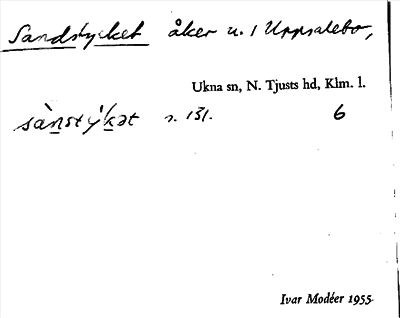 Sandstycket åker u. 1 Uppsalebo,
Ukna sn, N. Tjusts hd, Klm. l.
sànstýkət s. 131. 6
Ivar Modéer 1955.